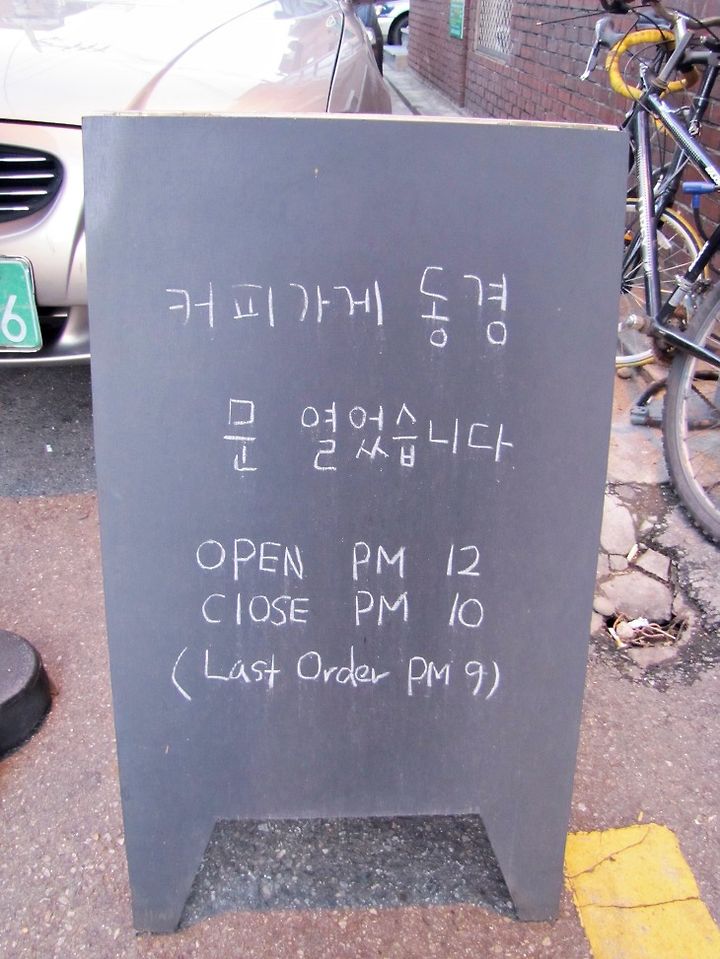 6
커피가게 동경
문 열었습니다
OPEN PM 12
CLOSE PM 10
(Last Order PM 9)